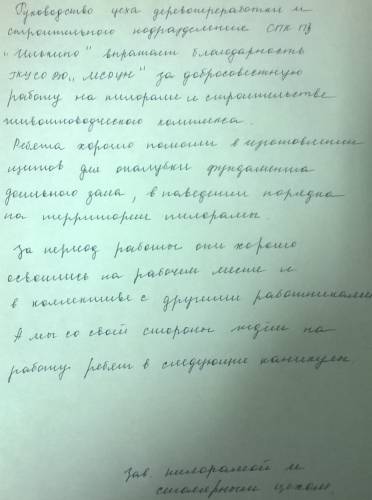 Руководство цеха деревопереработки и
строительного подразделения СПК ПЗ
"Илькино" выражает благодарность
ГКУСО ВО "МСОЦН" за добросовестную
работу на пилораме и строительстве
животноводческого комплекса.
Ребята хорошо помогли в изготовлении
щитов для опалубки фундамента
доильного зала, в наведении порядка
на территории пилорамы.
За период работы они хорошо
освоились на рабочем месте и
в коллективе с другими работниками
А мы со своей стороны ждём на
работу ребят в следующие каникулы.
Зав. пилорамой и
столярным цехом